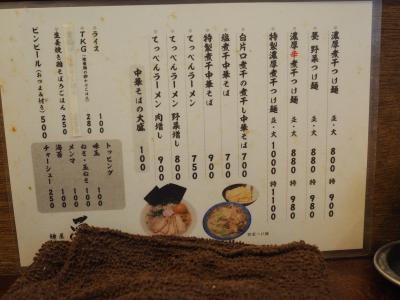 濃厚煮干つけ麺 並・大 800 特 900
晏 野菜つけ麺 並・大 880 特 980
濃厚辛煮干つけ麺 並・大 880 特 980
特製濃厚煮干つけ麺 並・大 1000 特 1100
白片口煮干の煮干し中華そば 700
塩煮干中華そば 700
特製煮干中華そば 900
てっぺんラーメン 750
てっぺんラーメン 野菜増し 800
てっぺんラーメン 肉増し 900
中華そばの大盛 100
ライス 100
TKG 280
生姜焼き揚そぼろごはん 250
ビンビール(おつまみ付き) 500
トッピング
味玉 100
ねぎ・玉ねぎ 100
メンマ 100
海苔 100
チャーシュー 250
野菜つけ麺